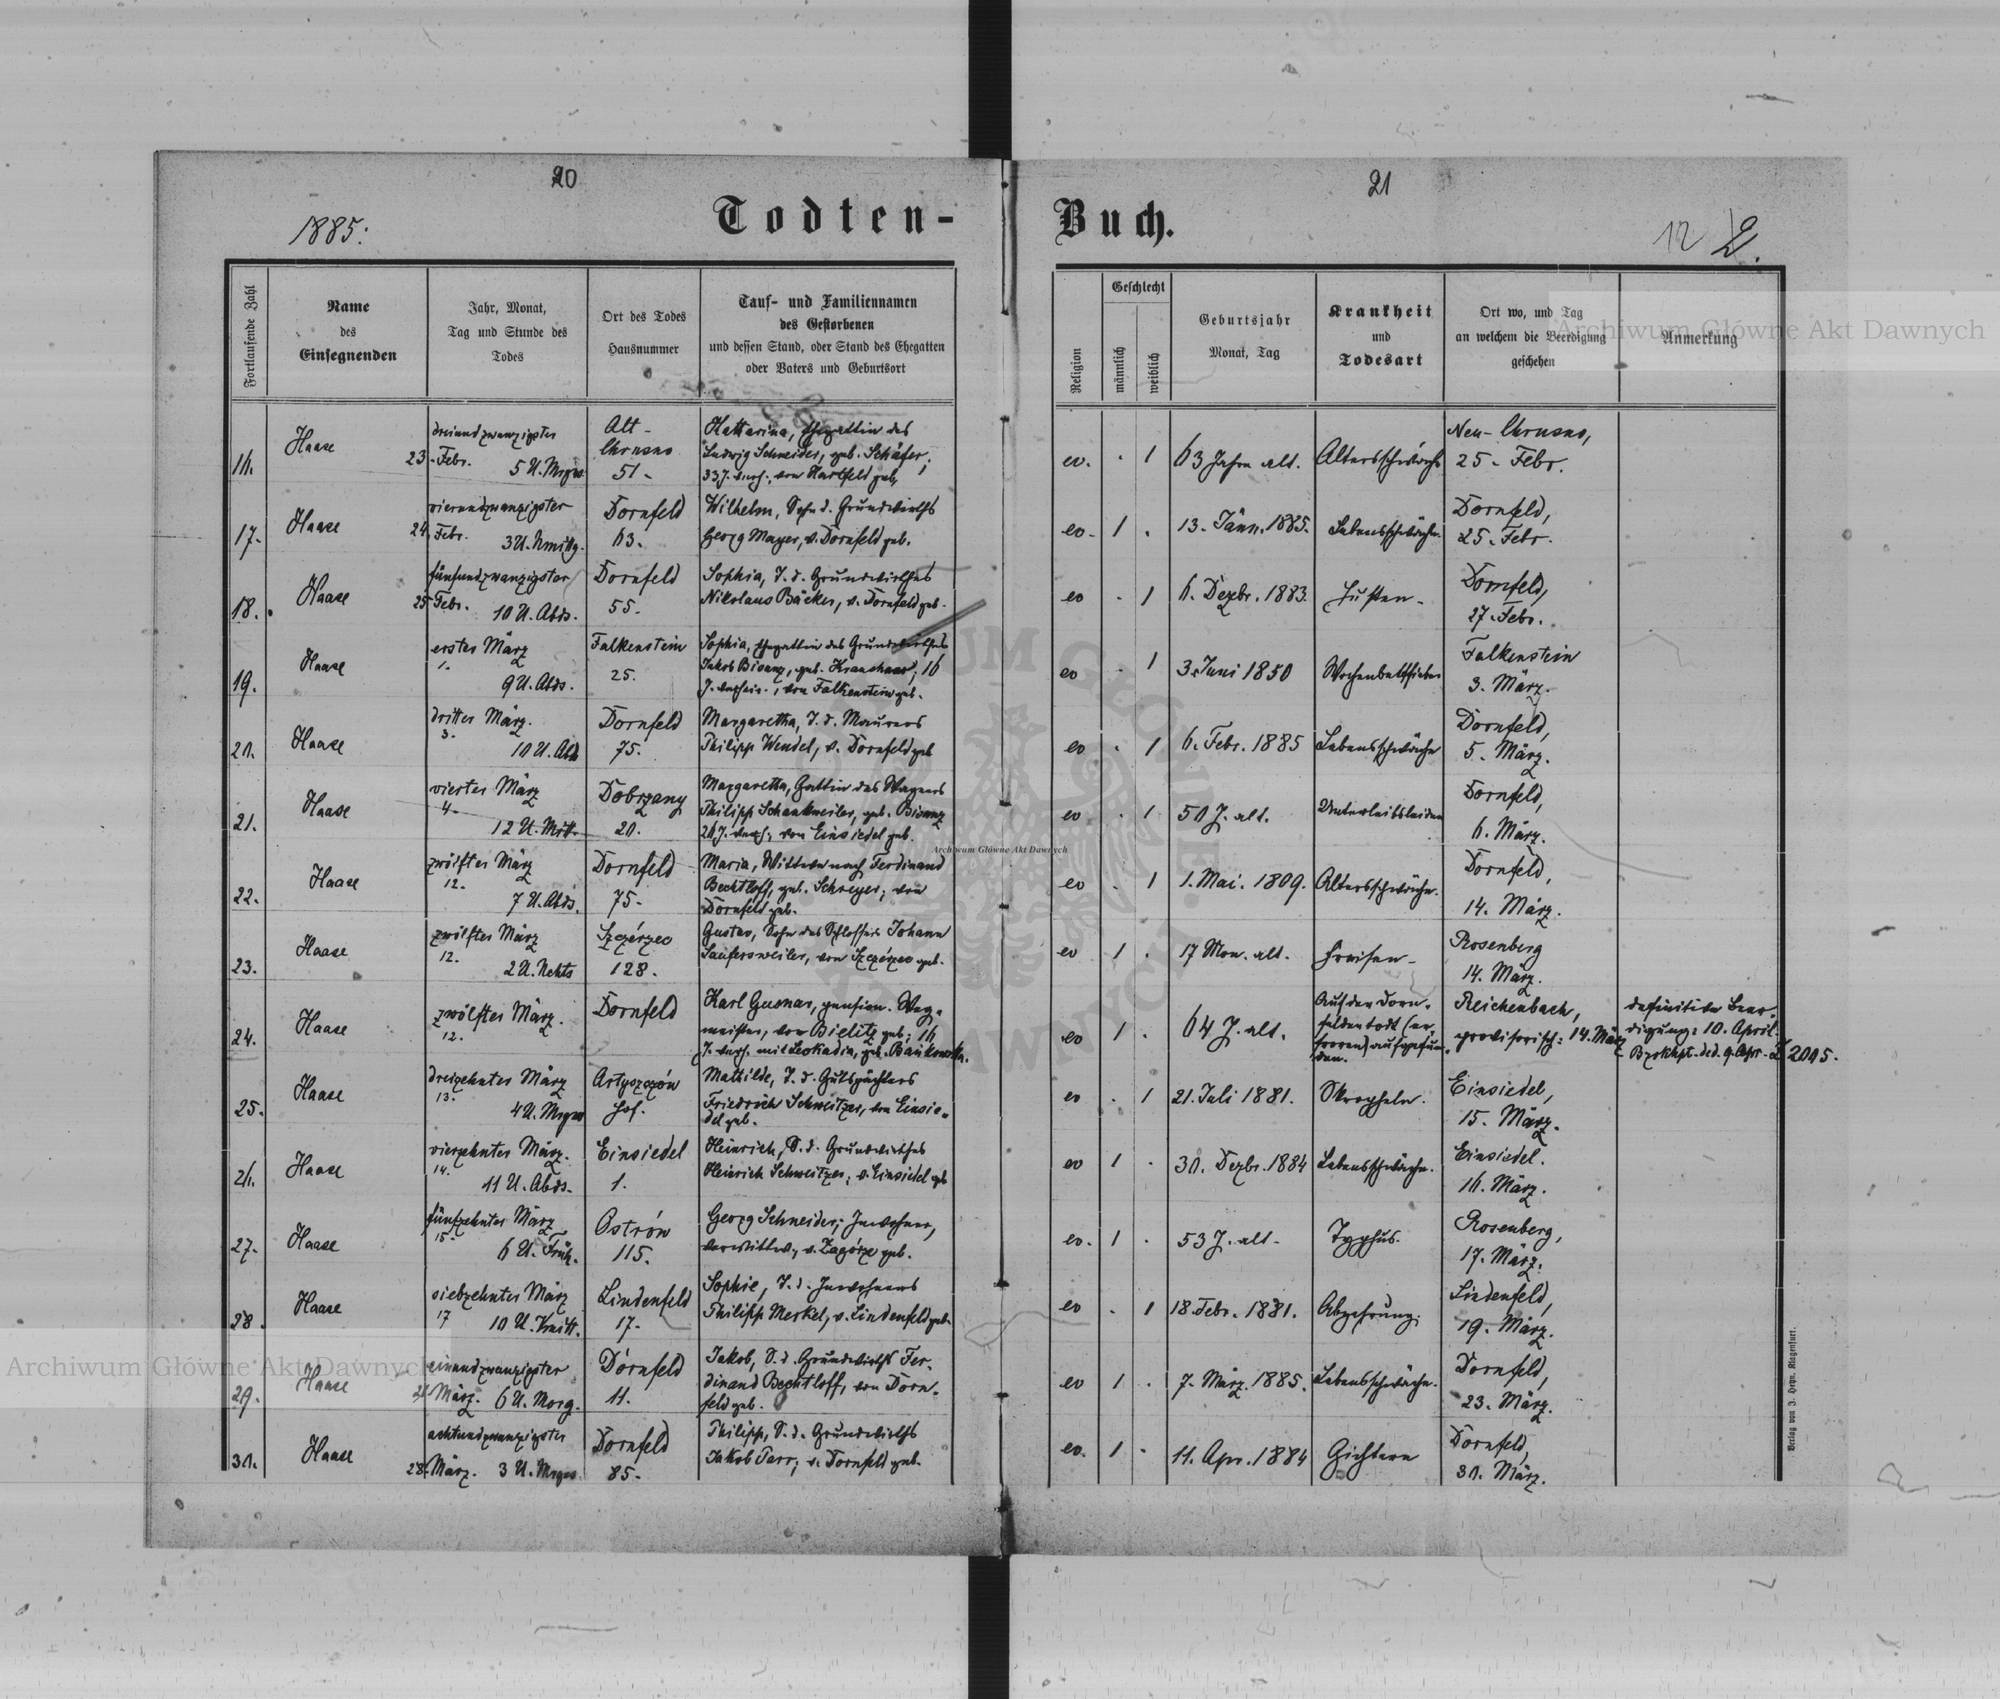 20
21
Todten-
Buch.
1885.
12
2.
Fortlaufende Zahl
Name
des
Einsegnenden
Jahr, Monat,
Tag und Stunde des
Todes
Ort des Todes
Hausnummer
Tauf- und Familiennamen
des Gestorbenen
und dessen Stand, oder Stand des Ehegatten
oder Vaters und Geburtsort
Religion
Geschlecht
männlich
weiblich
Geburtsjahr
Monat, Tag
Krankheit
und
Todesart
Ort wo, und Tag
an welchem die Beerdigung
geschehen
Anmerkung
16. Haase
dreiundzwanzigster
23. Febr. 5 U. Mrgns
Alt-
Chrusno
51-
Kattarina, Ehegattin des
Ludwig Schneider, geb. Schäfer;
33 J. verh., von Hartfeld geb.
ev. . 1
63 Jahre alt.
Altersschwäche
Neu-Chrusno,
25. Febr.
17. Haase
vierundzwanzigster
24. Febr. 3 U. Nmittg.
Dornfeld
63.
Wilhelm, Sohn d. Grundwirths
Georg Mayer, v. Dornfeld geb.
ev. 1 .
13. Jänn. 1885.
Lebensschwäche.
Dornfeld,
25. Febr.
18. Haase
fünfundzwanzigster
25. Febr. 10 U. Abds.
Dornfeld
55.
Sophia, T. d. Grundwirthes
Nikolaus Bäcker, v. Dornfeld geb.
ev . 1
6. Dezbr. 1883.
Husten.
Dornfeld,
27. Febr.
19. Haase
erster März
1.
9 U. Abds.
Falkenstein
25.
Sophia, Ehegattin des Grundwirthes
Jakob Bisanz, geb. Kraushaar, 16
J. verheir., von Falkenstein geb.
ev . 1
3. Juni 1850
Wochenbettfieber
Falkenstein
3. März.
20. Haase
dritter März.
3.
10 U. Abds
Dornfeld
75.
Margaretha, T. d. Maurers
Philipp Wendel, v. Dornfeld geb
ev . 1
6. Febr. 1885
Lebensschwäche
Dornfeld,
5. März.
21. Haase
vierter März
4.
12 U. Mitt.
Dobrzany
20.
Margaretha, Gattin des Wagners
Philipp Schankweiler, geb. Bisanz
26 J. verh., von Einsiedel geb.
ev . 1
50 J. alt.
Unterleibsleiden
Dornfeld,
6. März.
22. Haase
zwölfter März
12.
7 U. Abds.
Dornfeld
75.
Maria, Wittwe nach Ferdinand
Bechtloff, geb. Schreyer; von
Dornfeld geb.
ev . 1
1. Mai. 1809.
Altersschwäche.
Dornfeld,
14. März.
23. Haase
zwölfter März
12.
2 U. Nchts
Szczérzec
128.
Gustav, Sohn des Schlossers Johann
Saufersweiler, von Szczérzec geb.
ev 1 .
17 Mon. alt.
Fraisen.
Rosenberg
14. März.
24. Haase
zwölfter März.
12.
Dornfeld
Karl Gusnar, pension. Weg-
meister, von Bielitz geb.; 16
J. verh. mit Leokadia, geb. Bankowska.
ev 1 .
64 J. alt.
Auf den Dorn-
felden todt (er-
froren) aufgefun-
den.
Reichenbach,
provisorisch: 14. März
definitive Beer-
digung: 10. April.
Bzrkhpt. ded. 9. Apr. Z 2005.
25. Haase
dreizehnter März
13.
4 U. Mrgns
Artyszczów
Hof.
Mathilde, T. d. Gutspächters
Friedrich Schweitzer, von Einsie-
del geb.
ev . 1
21. Juli 1881.
Skropheln.
Einsiedel,
15. März.
26. Haase
vierzehnter März.
14.
11 U. Abds.
Einsiedel
1.
Heinrich, S. d. Grundwirthes
Heinrich Schweitzer, v. Einsiedel geb
ev 1 .
30. Dezbr. 1884
Lebensschwäche.
Einsiedel.
16. März.
27. Haase
fünfzehnter März
15.
6 U. Früh.
Ostrów
115.
Georg Schneider; Inwohner,
verwittwt., v. Zagórze geb.
ev. 1 .
53 J. alt.
Typhus.
Rosenberg,
17. März.
28. Haase
siebzehnter März
17
10 U. Vmitt.
Lindenfeld
17.
Sophie, T. d. Inwohners
Philipp Merkel, v. Lindenfeld geb.
ev . 1
18. Febr. 1881.
Abzehrung.
Lindenfeld,
19. März.
29. Haase
einundzwanzigster
21. März. 6 U. Morg.
Dornfeld
11.
Jakob, S. d. Grundwirths Fer-
dinand Bechtloff, von Dorn-
feld geb.
ev 1 .
7. März. 1885.
Lebensschwäche.
Dornfeld,
23. März.
30. Haase
achtundzwanzigster
28. März. 3 U. Mrgns.
Dornfeld
85.
Philipp, S. d. Grundwirths
Jakob Parr, v. Dornfeld geb.
ev. 1 .
11. Apr. 1884
Gichtern
Dornfeld,
30. März.
Verlag von J. Heyn, Klagenfurt.
Archiwum Główne Akt Dawnych
Archiwum Główne Akt Dawnych
Archiwum Główne Akt Dawnych